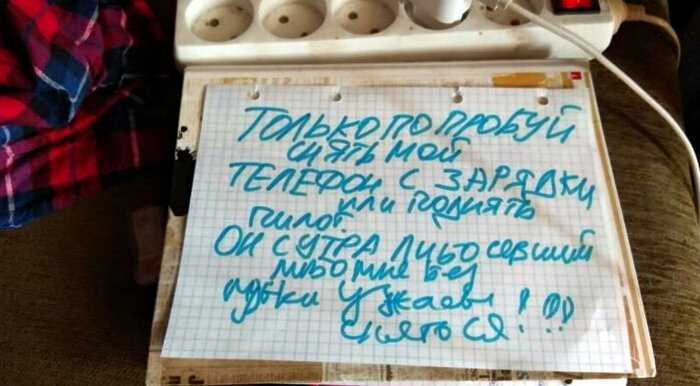 ТОЛЬКО ПОПРОБУЙ
СНЯТЬ МОЙ
ТЕЛЕФОН С ЗАРЯДКИ
или поднять
пилот.
ОН С УТРА Либо севший
либо мне без
Ужасы !!!
снятся